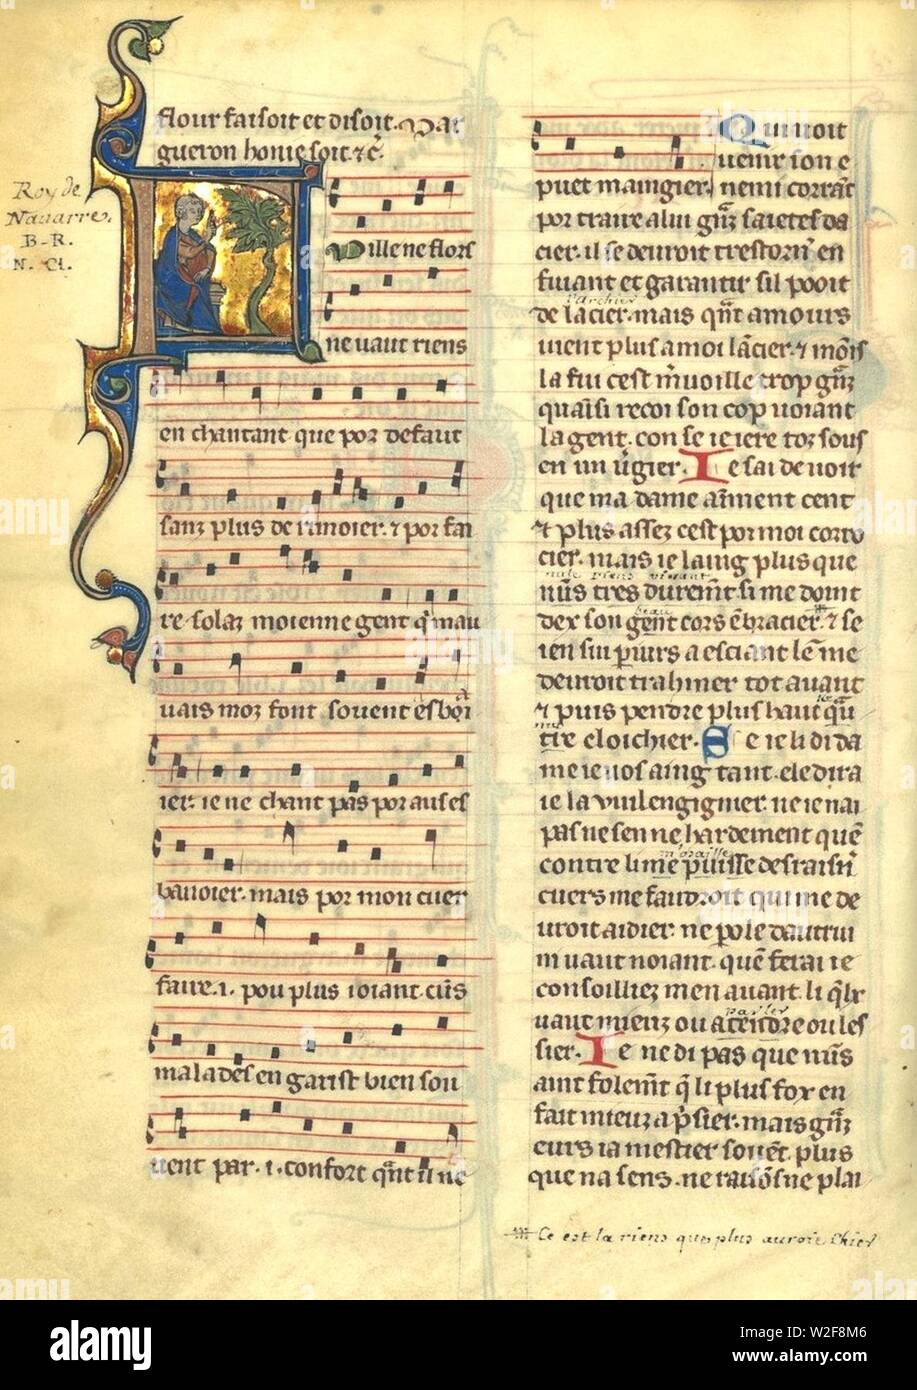 flour faisoit et disoit. Mar
gueron honie soit. ⁊c̃.
Roy de
Navarre.
B-R.
N. Cl.
Fuille ne flors
ne vaut riens
en chantant que por defaut
sanz plus de rimoier. ⁊ por fai
re solaz moienne gent q̃ mau
uais moz font souent es bar
ier. ie ne chant pas por aus es
banoier. mais por mon cuer
faire .i. pou plus ioiant. cũs
malades en garist bien sou
uent par .i. confort q̃nt il ne
Qui uoit
uenir son e
puet maingier. nemi corrãt
por traire a lui gñz saietes da
cier. il se deuroit trestorñ en
fuiant et garantir sil pooit
l'archier
de lacier. mais qñt amours
uient plus a moi lãcier. ⁊ moĩs
la fui cest m̃uoille trop gñz
quaĩsi recoi son cop uoiant
la gent. con se ie iere toz sous
en un ũgier. Ie sai de uoir
que ma dame aĩment cent
⁊ plus assez cest por moi corro
cier. mais ie laing plus que
nule riens vivant
nũs tres durem̃t. si me doint
beau
dex son gent cors ẽbracier. ⁊ se
ien sui p̲iurs a esciant lẽ me
deuroit trahiner tot auant
⁊ puis pendre plus haut q̃u
tre cloichier. Se ie li di da
me ie uos aing tant. ele dira
ie la vuil engignier. ne ie nai
pas ne sen ne hardement quẽ
contre li me puisse desraisñ
cuers me faudroit qui me de
uroit aidier. ne pole dautrui
m uaut noiant. quẽ ferai ie
consoilliez men auant. li q̃lx
parler
uaut mieuz ou atendre ou les
sier. Ie ne di pas que nũs
aint folem̃t q̃ li plus fox en
fait mieuz a p̃sier. mais gñz
eurs ia mestier souẽt. plus
que na sens. ne raisõs ne plai
Ce est la riens que plus auroie chier